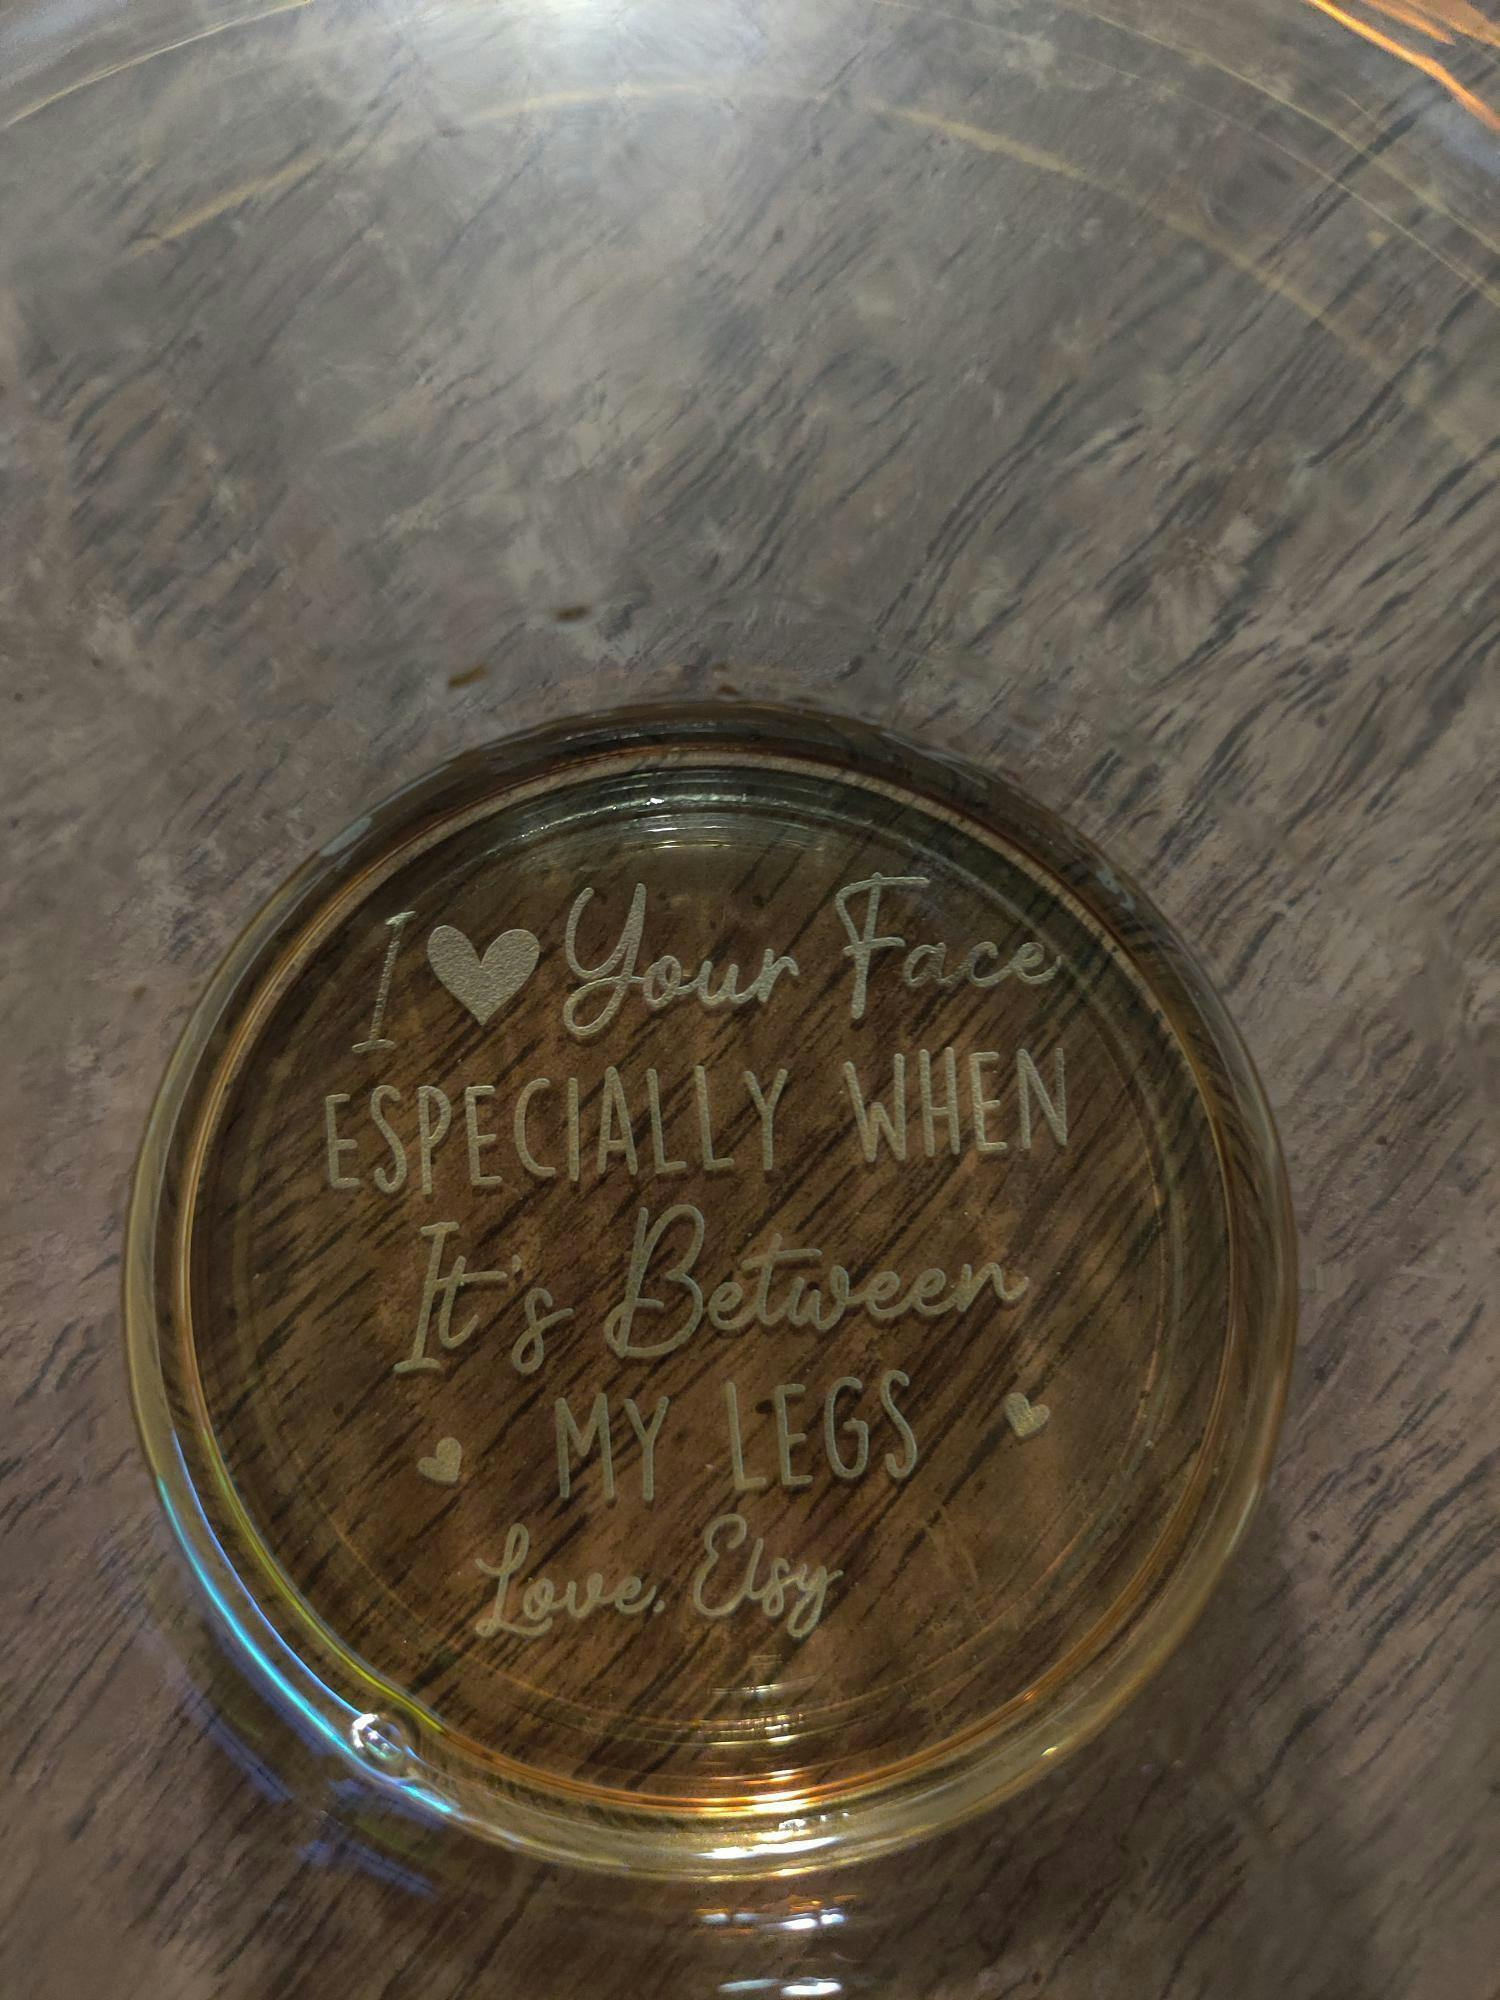 I ♥ Your Face
ESPECIALLY WHEN
It's Between
MY LEGS
Love, Elsy